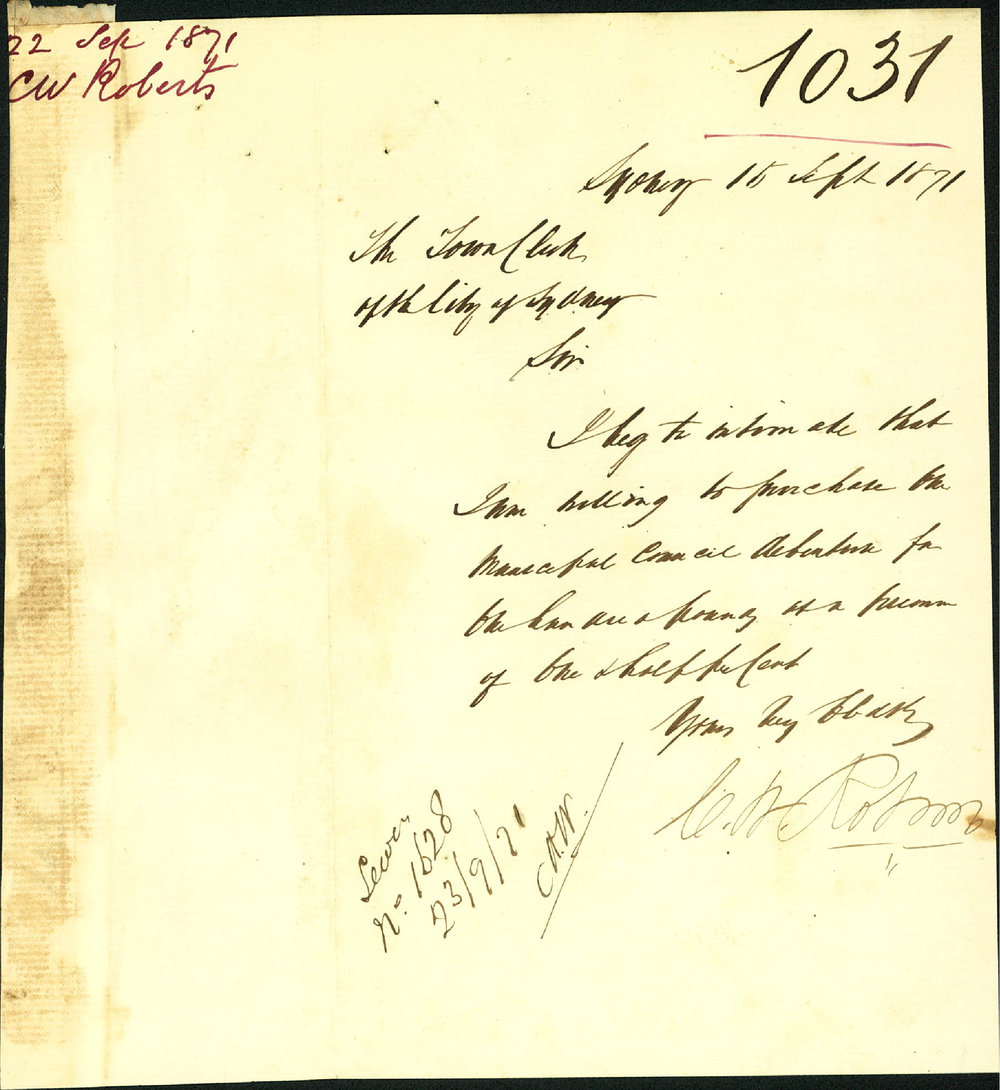 22 Sep 1871
CW Roberts
1031
Sydney 15 Sept 1871
The Town Clerk
of the City of Sydney
Sir
I beg to intimate that
I am willing to purchase the
Municipal Council Debenture for
One hundred pounds at a premium
of One & half per Cent
Yours very
C. W. Roberts
Sewer
No. 1528
23/9/71